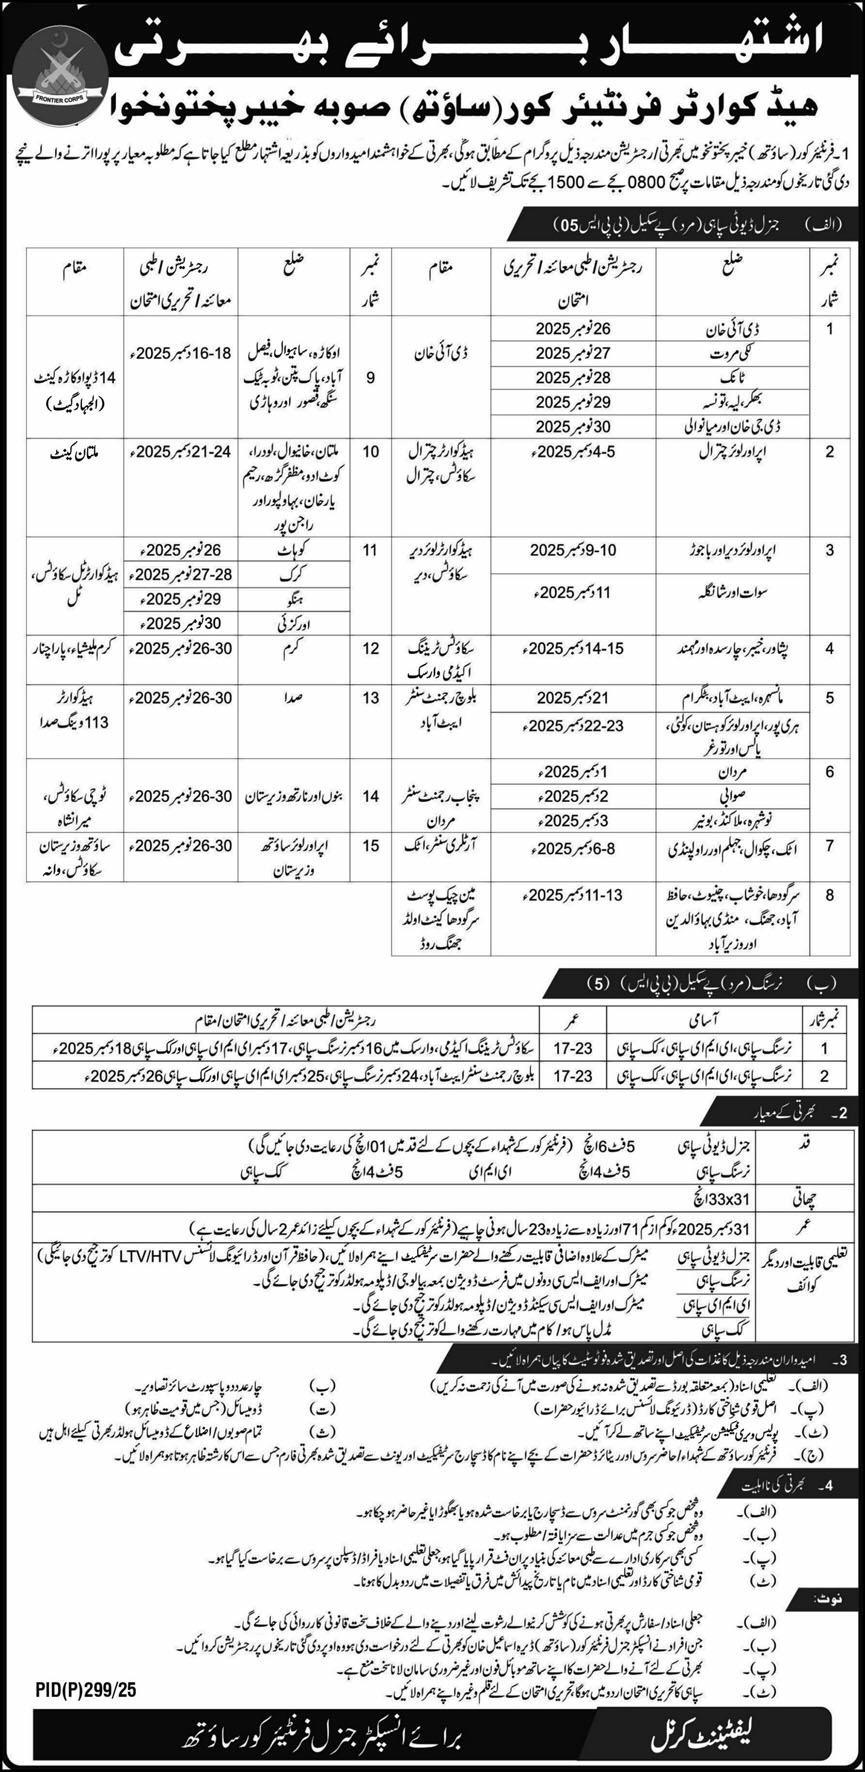 اشتہار برائے بھرتی
FRONTIER CORPS
ہیڈ کوارٹر فرنٹیئر کور (ساؤتھ) صوبہ خیبر پختونخوا
1۔ فرنٹیئر کور (ساؤتھ) خیبر پختونخوا میں بھرتی/رجسٹریشن مندرجہ ذیل پروگرام کے مطابق ہوگی، بھرتی کے خواہشمند امیدواروں کو بذریعہ اشتہار مطلع کیا جاتا ہے کہ مطلوبہ معیار پر پورا اترنے والے نیچے
دی گئی تاریخوں کو مندرجہ ذیل مقامات پر صبح 0800 بجے سے 1500 بجے تک تشریف لائیں۔
(الف) جنرل ڈیوٹی سپاہی (مرد) پے سکیل (بی پی ایس 05)
نمبر شمار ضلع رجسٹریشن/طبی معائنہ/تحریری امتحان مقام
1 ڈی آئی خان 26 نومبر 2025 ڈی آئی خان
لکی مروت 27 نومبر 2025
ٹانک 28 نومبر 2025
بھکر، لیہ، تونسہ 29 نومبر 2025
ڈی جی خان اور میانوالی 30 نومبر 2025
2 اپر اور لوئر چترال 4-5 دسمبر 2025ء ہیڈ کوارٹر چترال سکاؤٹس، چترال
3 اپر اور لوئر دیر اور باجوڑ 9-10 دسمبر 2025 ہیڈ کوارٹر لوئر دیر سکاؤٹس، دیر
سوات اور شانگلہ 11 دسمبر 2025ء
4 پشاور، خیبر، چارسدہ اور مہمند 14-15 دسمبر 2025ء سکاؤٹس ٹریننگ اکیڈمی وارسک
5 مانسہرہ، ایبٹ آباد، بٹگرام 21 دسمبر 2025 بلوچ رجمنٹ سنٹر ایبٹ آباد
ہری پور، اپر اور لوئر کوہستان، کولئی، پالس اور تورغر 22-23 دسمبر 2025ء
6 مردان 1 دسمبر 2025ء پنجاب رجمنٹ سنٹر مردان
صوابی 2 دسمبر 2025ء
نوشہرہ، ملاکنڈ، بونیر 3 دسمبر 2025ء
7 اٹک، چکوال، جہلم اور راولپنڈی 6-8 دسمبر 2025ء آرٹلری سنٹر، اٹک
8 سرگودھا، خوشاب، چنیوٹ، حافظ آباد، جھنگ، منڈی بہاؤالدین اور وزیر آباد 11-13 دسمبر 2025ء مین چیک پوسٹ سرگودھا کینٹ اولڈ جھنگ روڈ
نمبر شمار ضلع رجسٹریشن/طبی معائنہ/تحریری امتحان مقام
9 اوکاڑہ، ساہیوال، فیصل آباد، پاک پتن، ٹوبہ ٹیک سنگھ، قصور اور وہاڑی 16-18 دسمبر 2025ء 14 ڈیو اوکاڑہ کینٹ (الجہاد گیٹ)
10 ملتان، خانیوال، لودراں، کوٹ ادو، مظفر گڑھ، رحیم یار خان، بہاولپور اور راجن پور 21-24 دسمبر 2025ء ملتان کینٹ
11 کوہاٹ 26 نومبر 2025ء ہیڈ کوارٹر ٹل سکاؤٹس، ٹل
کرک 27-28 نومبر 2025ء
ہنگو 29 نومبر 2025ء
اورکزئی 30 نومبر 2025ء
12 کرم 26-30 نومبر 2025ء کرم ملیشیاء، پارا چنار
13 صدا 26-30 نومبر 2025ء ہیڈ کوارٹر 113 ونگ صدا
14 بنوں اور نارتھ وزیرستان 26-30 نومبر 2025ء ٹوچی سکاؤٹس، میرانشاہ
15 اپر اور لوئر ساؤتھ وزیرستان 26-30 نومبر 2025ء ساؤتھ وزیرستان سکاؤٹس، وانہ
(ب) نرسنگ (مرد) پے سکیل (بی پی ایس) (5)
نمبر شمار آسامی عمر رجسٹریشن/طبی معائنہ/تحریری امتحان/مقام
1 نرسنگ سپاہی، ای ایم ای سپاہی، کک سپاہی 17-23 سکاؤٹس ٹریننگ اکیڈمی، وارسک میں 16 دسمبر نرسنگ سپاہی، 17 دسمبر ای ایم ای سپاہی اور کک سپاہی 18 دسمبر 2025ء
2 نرسنگ سپاہی، ای ایم ای سپاہی، کک سپاہی 17-23 بلوچ رجمنٹ سنٹر ایبٹ آباد، 24 دسمبر نرسنگ سپاہی، 25 دسمبر ای ایم ای سپاہی اور کک سپاہی 26 دسمبر 2025ء
2۔ بھرتی کے معیار
قد جنرل ڈیوٹی سپاہی 5 فٹ 6 انچ (فرنٹیئر کور کے شہداء کے بچوں کے لئے قد میں 01 انچ کی رعایت دی جائیں گی)
نرسنگ سپاہی 5 فٹ 4 انچ ای ایم ای 5 فٹ 4 انچ کک سپاہی
چھاتی 33x31 انچ
عمر 31 دسمبر 2025ء کو کم از کم 17 اور زیادہ سے زیادہ 23 سال ہونی چاہیے (فرنٹیئر کور کے شہداء کے بچوں کیلئے زائد عمر 2 سال کی رعایت ہے)
تعلیمی قابلیت اور دیگر کوائف جنرل ڈیوٹی سپاہی میٹرک کے علاوہ اضافی قابلیت رکھنے والے حضرات سرٹیفکیٹ اپنے ہمراہ لائیں، (حافظ قرآن اور ڈرائیونگ لائسنس LTV/HTV کو ترجیح دی جائیگی)
نرسنگ سپاہی میٹرک اور ایف ایس سی دونوں میں فرسٹ ڈویژن بمعہ بیالوجی/ڈپلومہ ہولڈر کو ترجیح دی جائے گی۔
ای ایم ای سپاہی میٹرک اور ایف ایس سی سیکنڈ ڈویژن/ڈپلومہ ہولڈر کو ترجیح دی جائے گی۔
کک سپاہی مڈل پاس ہو/کام میں مہارت رکھنے والے کو ترجیح دی جائے گی۔
3۔ امیدواران مندرجہ ذیل کاغذات کی اصل اور تصدیق شدہ فوٹو سٹیٹ کاپیاں ہمراہ لائیں۔
(الف)۔ تعلیمی اسناد (بمعہ متعلقہ بورڈ سے تصدیق شدہ نہ ہونے کی صورت میں آنے کی زحمت نہ کریں) (ب) چار عدد پاسپورٹ سائز تصاویر۔
(پ)۔ اصل قومی شناختی کارڈ (ڈرائیونگ لائسنس برائے ڈرائیور حضرات) (ت) ڈومیسائل (جس میں قومیت ظاہر ہو)
(ٹ)۔ پولیس ویری فیکیشن سرٹیفکیٹ اپنے ساتھ لے کر آئیں۔ (ث) تمام صوبوں/اضلاع کے ڈومیسائل ہولڈر بھرتی کیلئے اہل ہیں
(ج)۔ فرنٹیئر کور ساؤتھ کے شہداء/حاضر سروس اور ریٹائرڈ حضرات کے بچے اپنے نام کا ڈسچارج سرٹیفکیٹ اور یونٹ سے تصدیق شدہ بھرتی فارم جس سے اس کا رشتہ ظاہر ہو تا ہو ہمراہ لائیں۔
4۔ بھرتی کی نااہلیت
(الف)۔ وہ شخص جو کسی بھی گورنمنٹ سروس سے ڈسچارج یا برخاست شدہ ہو یا بھگوڑا یا غیر حاضر ہو چکا ہو۔
(ب)۔ وہ شخص جو کسی جرم میں عدالت سے سزا یافتہ/مطلوب ہو۔
(پ)۔ کسی بھی سرکاری ادارے سے طبی معائنہ کی بنیاد پر ان فٹ قرار پایا گیا ہو، جعلی تعلیمی اسناد یا فراڈ/ڈسپلن پر سروس سے برخاست کیا گیا ہو۔
(ث) قومی شناختی کارڈ اور تعلیمی اسناد میں نام یا تاریخ پیدائش میں فرق یا تفصیلات میں ردوبدل کا ہونا۔
نوٹ:
(الف)۔ جعلی اسناد/سفارش پر بھرتی ہونے کی کوشش کرنیوالے، رشوت لینے اور دینے والے کے خلاف سخت قانونی کارروائی کی جائے گی۔
(ب)۔ جن افراد نے انسپکٹر جنرل فرنٹیئر کور (ساؤتھ) ڈیرہ اسماعیل خان کو بھرتی کے لئے درخواست دی ہو وہ اوپر دی گئی تاریخوں پر رجسٹریشن کروائیں۔
(پ)۔ بھرتی کے لئے آنے والے حضرات کا اپنے ساتھ موبائل فون اور غیر ضروری سامان لانا سخت منع ہے۔
(ٹ)۔ سپاہی کا تحریری امتحان اردو میں ہوگا، تحریری امتحان کے لئے قلم وغیرہ اپنے ہمراہ لائیں۔
PID(P)299/25
لیفٹیننٹ کرنل
برائے انسپکٹر جنرل فرنٹیئر کور ساؤتھ